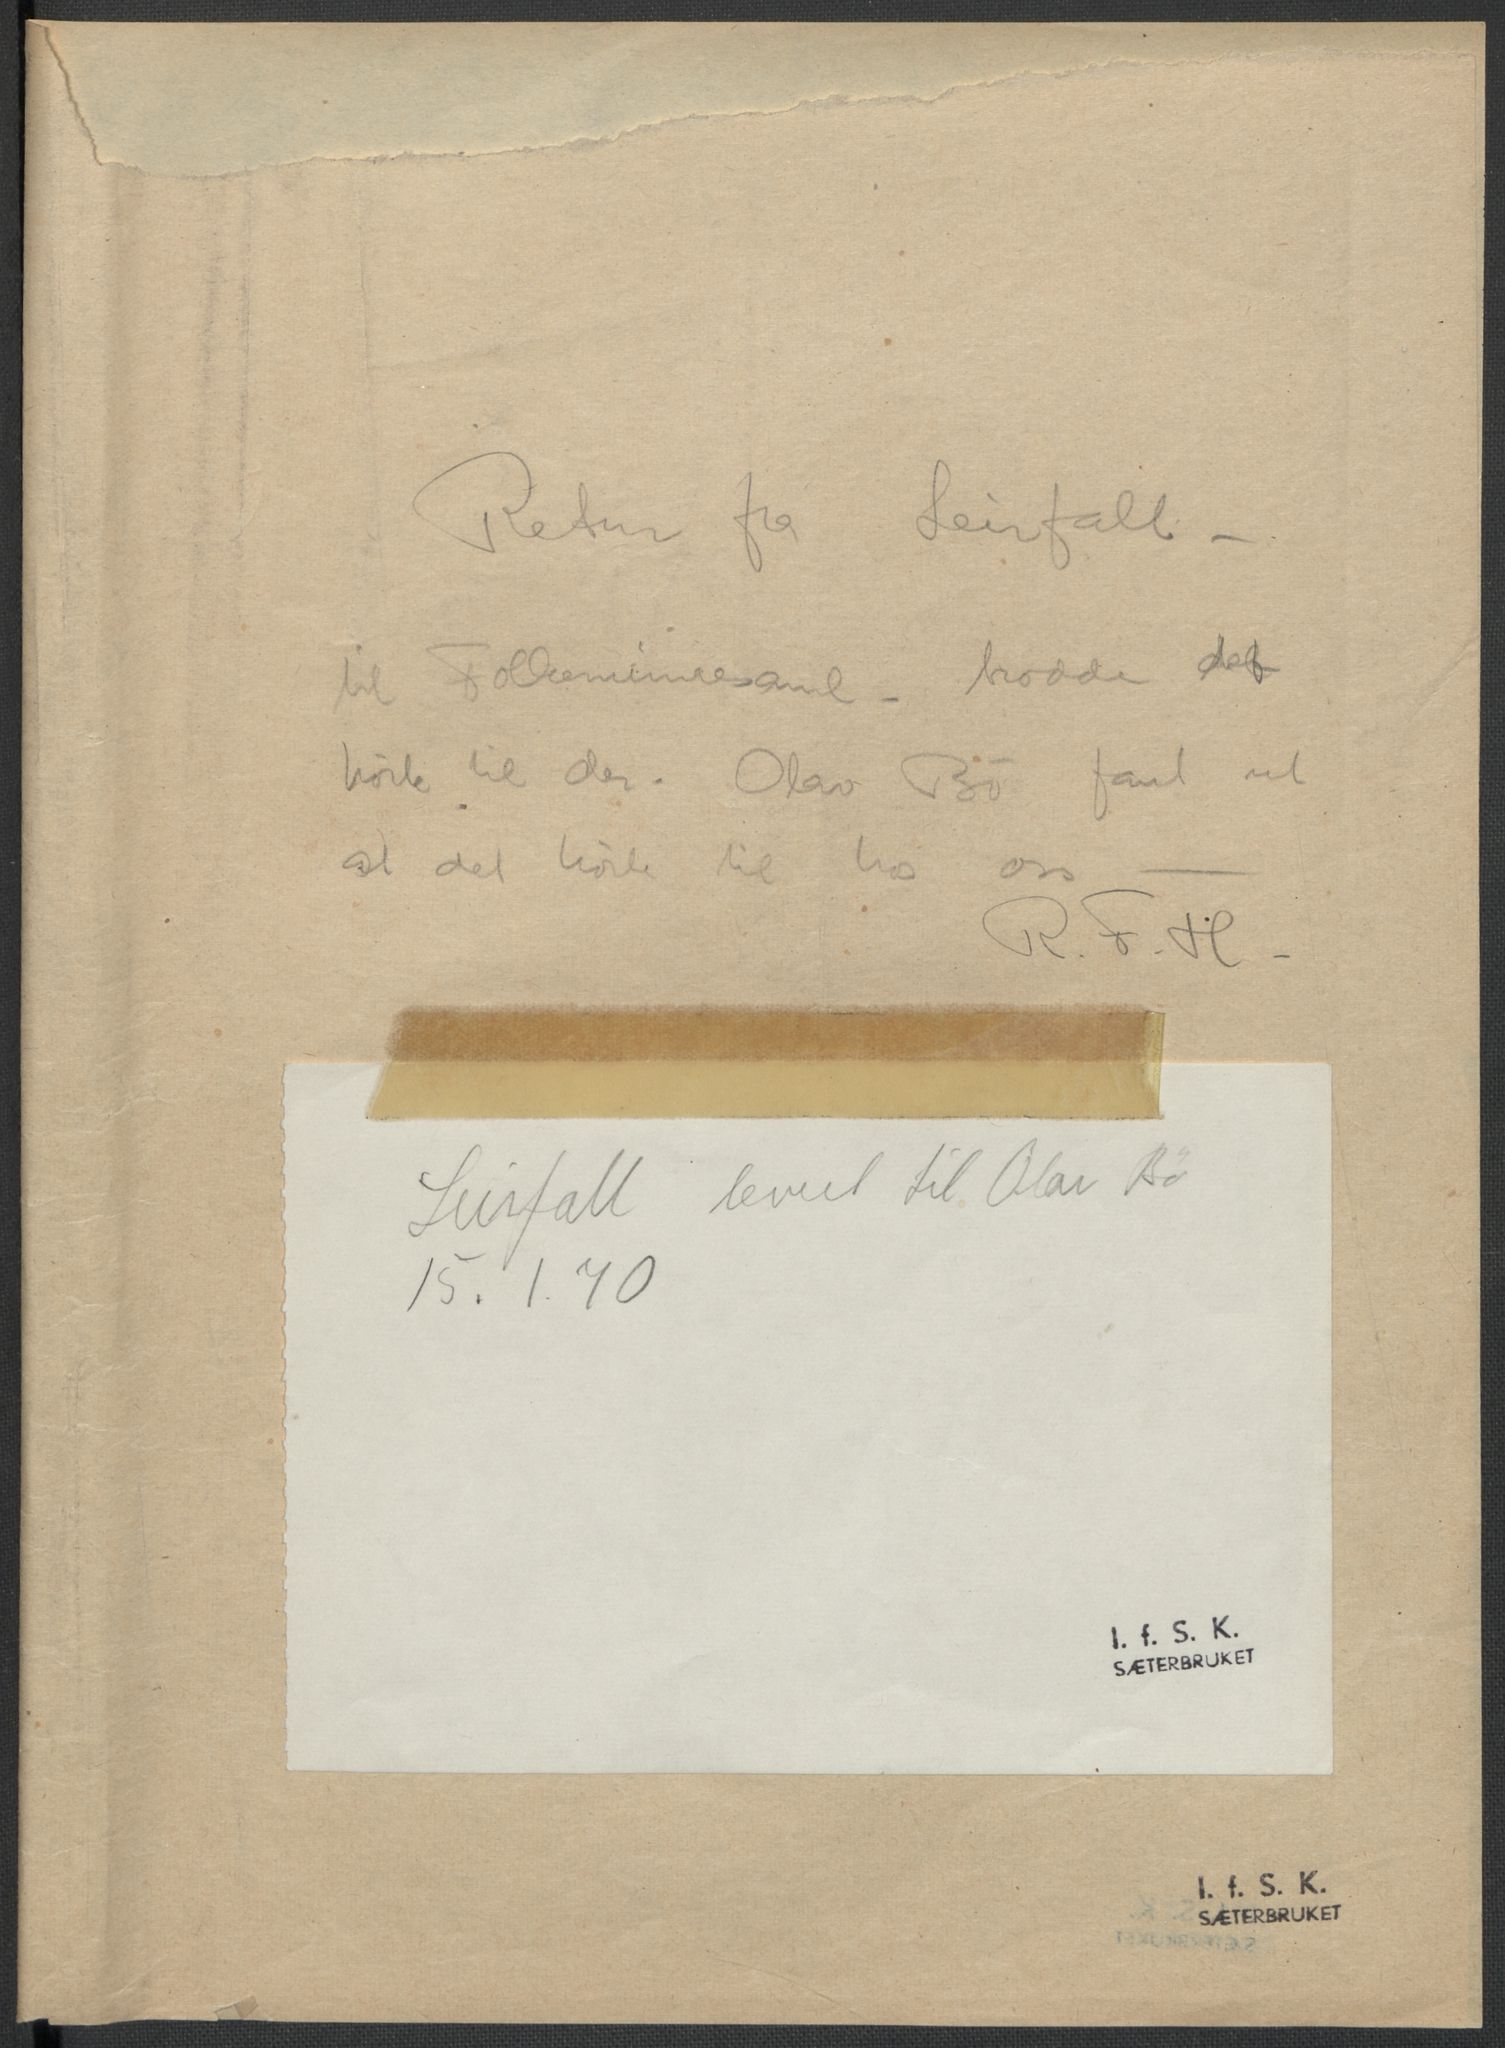 Retur fra Leirfall –
til Folkeminnesaml – trodde det
hörte til der. Olav Bö fant ut
at det hörte til hos oss —
R. F. H –
Leirfall levert til Olav Bö
15. 1. 70
I. f. S. K.
SÆTERBRUKET
I. f. S. K.
SÆTERBRUKET